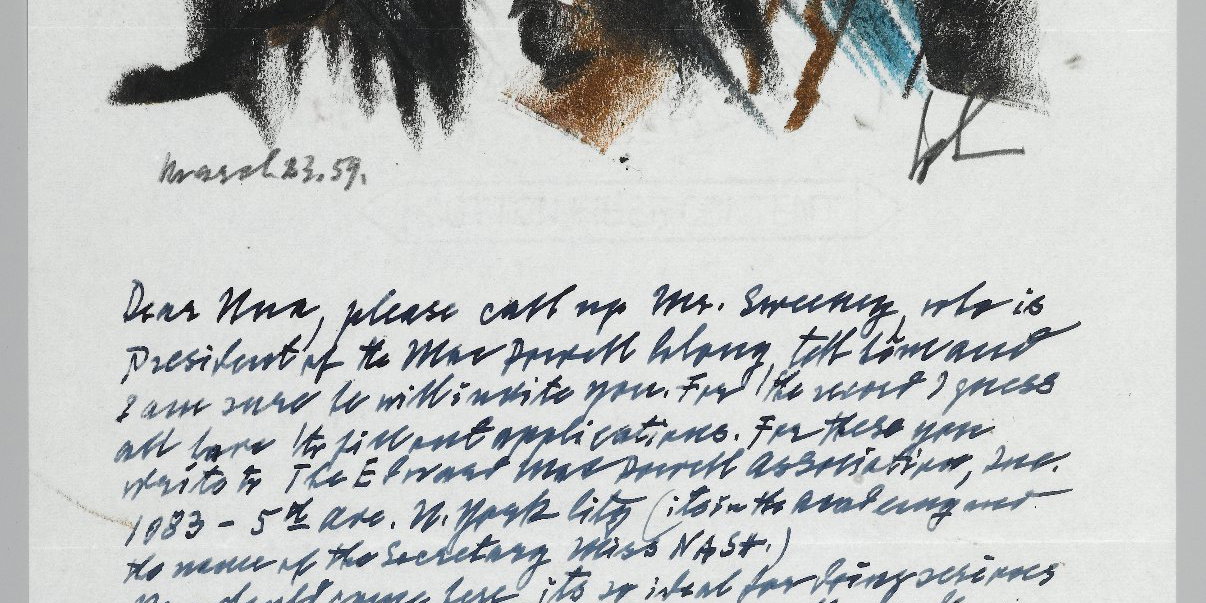 March 23. 59.
Dear Nina, please call up Mr. Sweeney, who is
President of the Mac Dowell Colony, tell him and
I am sure he will invite you. For the record I guess
all have to fill out applications. For these you
write to The Edward Mac Dowell Association, Inc.
1083 - 5th Ave. N. York City (its in the academy and
the name of the Secretary Miss NASH.)
here its so ideal for doing serious